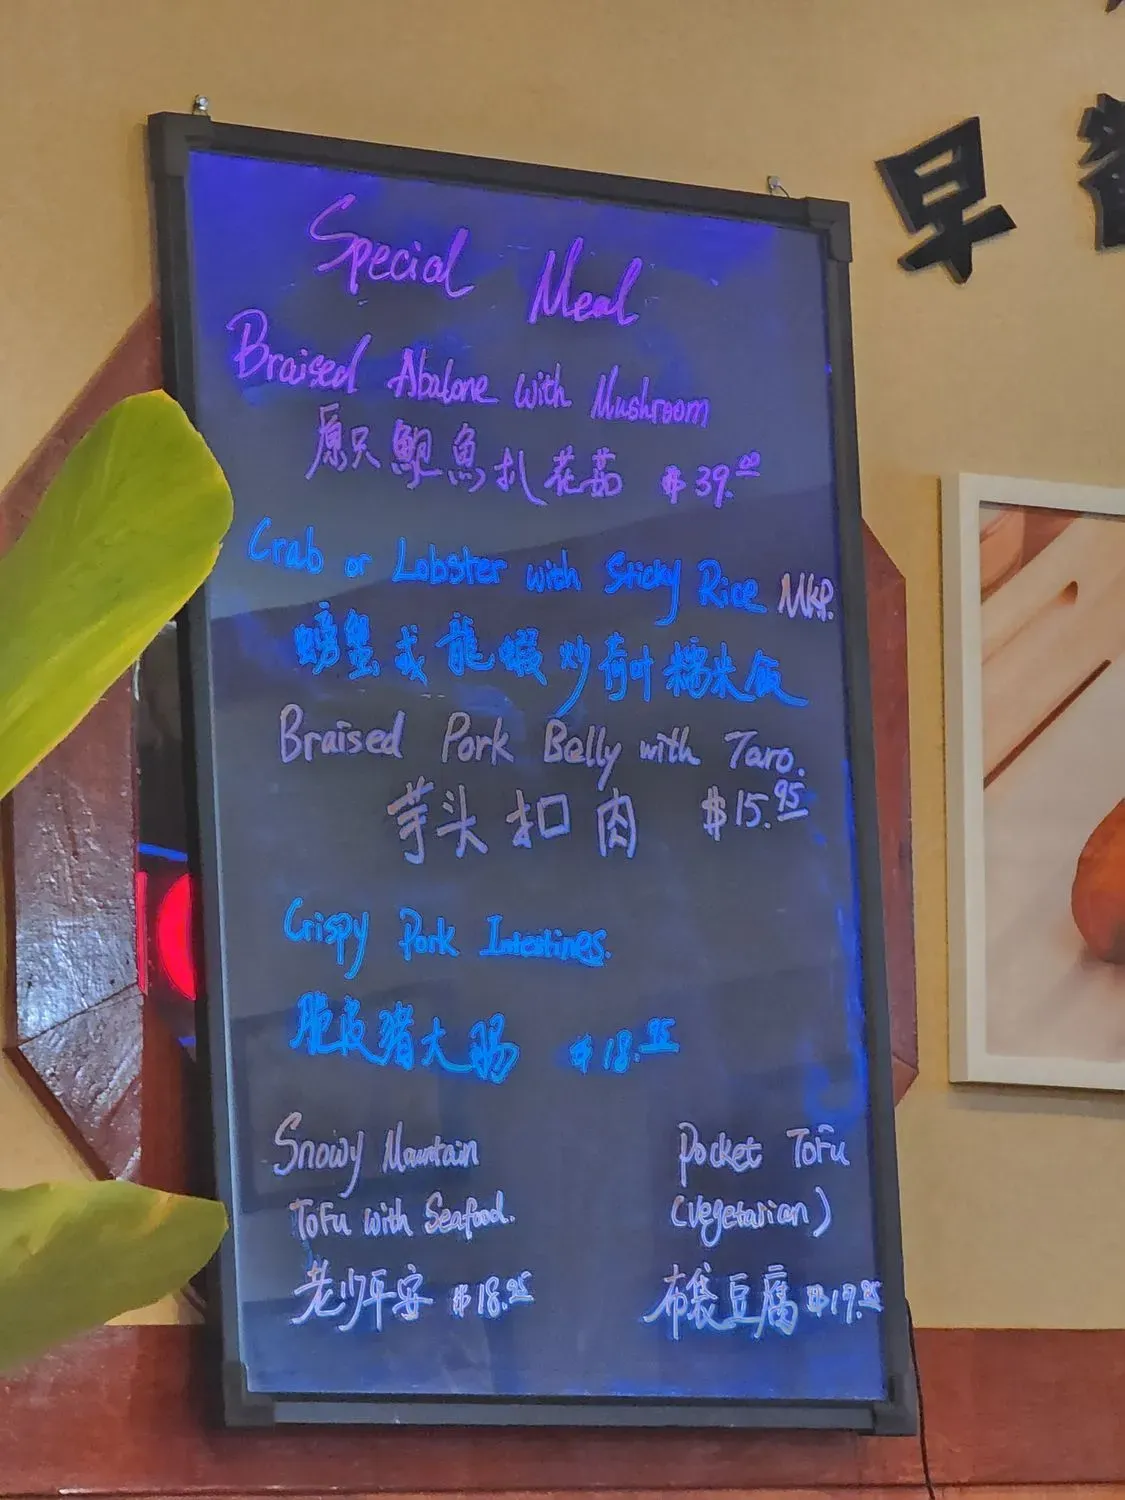 Special Meal
Braised Abalone with Mushroom
原只鲍魚扒花菇 $39.00
Crab or Lobster with Sticky Rice MKP.
螃蟹或龍蝦炒荷叶糯米飯
Braised Pork Belly with Taro.
芋头扣肉 $15.95
Crispy Pork Intestines.
脆皮猪大肠 $18.95
Snowy Mountain
Tofu with Seafood.
老少平安 $18.95
Pocket Tofu
(Vegetarian)
布袋豆腐 $17.95
早